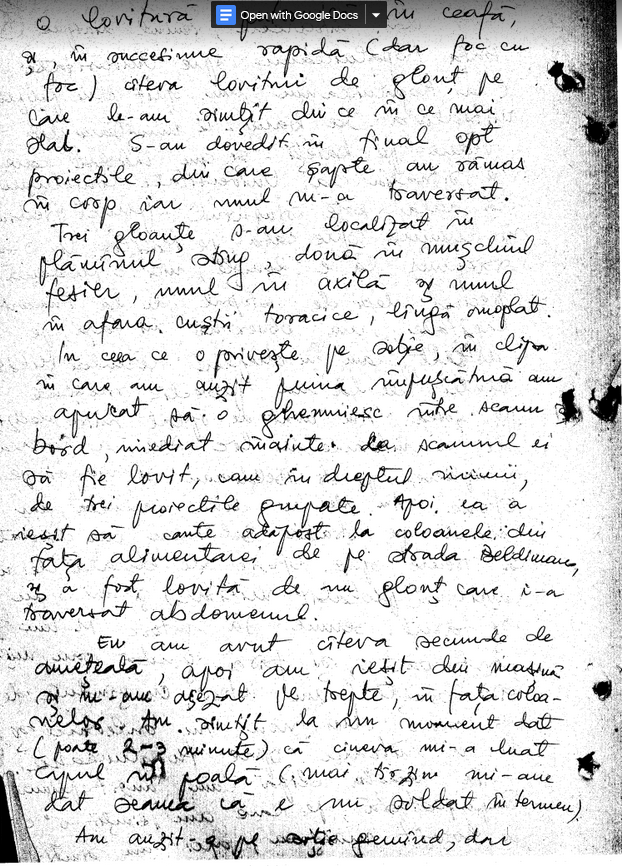 Open with Google Docs
o lovitură în ceafă,
și, în succesiune rapidă (dar foc cu
foc) cîteva lovituri de glonț pe
care le-am simțit din ce în ce mai
slab. S-au dovedit în final opt
proiectile, din care șapte au rămas
în corp iar unul m-a traversat.
Trei gloanțe s-au localizat în
plămînul stîng, două în mușchiul
fesier, unul în axilă și unul
în afara cuștii toracice, lîngă omoplat.
In ceea ce o privește pe soție, în clipa
în care am auzit prima împușcătură am
apucat să o ghemuiesc între scaun și
bord, imediat înainte ca scaunul ei
să fie lovit, cam în dreptul inimii,
de trei proiectile grupate. Apoi ea a
ieșit să caute adăpost la coloanele din
fața alimentarei de pe strada Beldiman,
și a fost lovită de un glonț care i-a
traversat abdomenul.
Eu am avut cîteva secunde de
amețeală, apoi am ieșit din mașină
și m-am așezat pe trepte, în fața coloa-
nelor. Am simțit la un moment dat
(poate 2-3 minute) că cineva mi-a luat
capul în poală (mai tîrziu mi-am
dat seama că e un soldat în termen).
Am auzit-o pe soție gemînd, dar